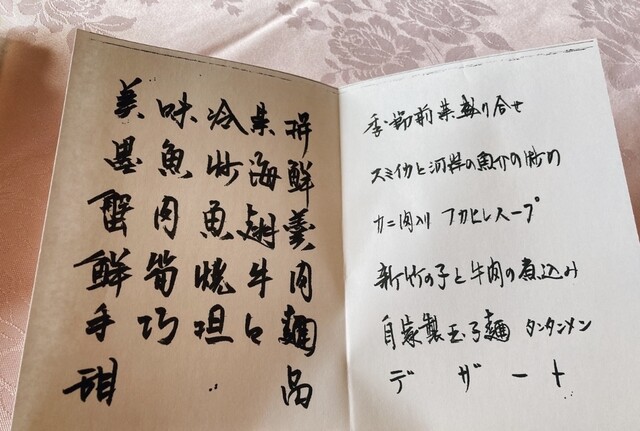 美味冷菜拼
墨魚炒海鮮
蟹肉魚翅羹
鮮筍燒牛肉
手巧担々麵
甜〃品
季節前菜盛り合せ
スミイカと河岸の魚介の炒め
カニ肉入り フカヒレスープ
新竹の子と牛肉の煮込み
自家製玉子麺 タンタンメン
デザート